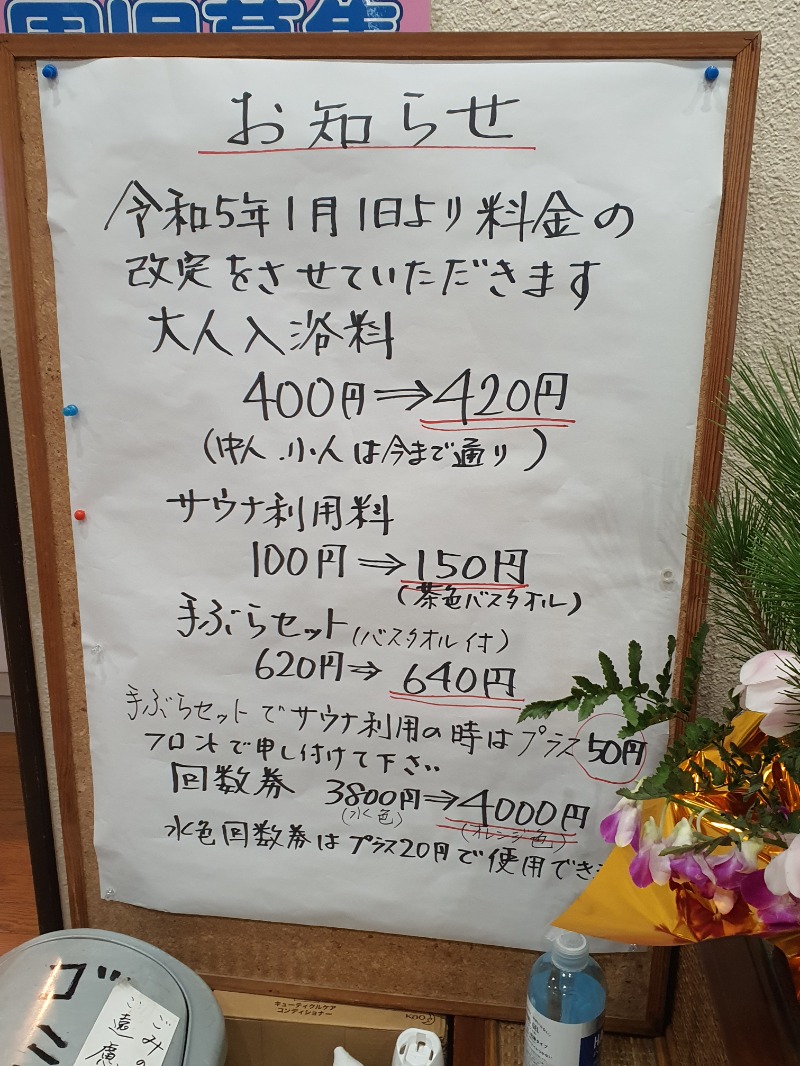 お知らせ
令和5年1月1日より料金の
改定をさせていただきます
大人入浴料
400円⇒420円
(中人.小人は今まで通り)
サウナ利用料
100円⇒150円
(茶色バスタオル)
手ぶらセット(バスタオル付)
620円⇒640円
手ぶらセットでサウナ利用の時はプラス50円
フロントで申し付けて下さい
回数券 3800円⇒4000円
(水色) (オレンジ色)
水色回数券はプラス20円で使用でき
ゴミ
ごみの
ご遠慮
キューティクルケア
コンディショナー
Kao